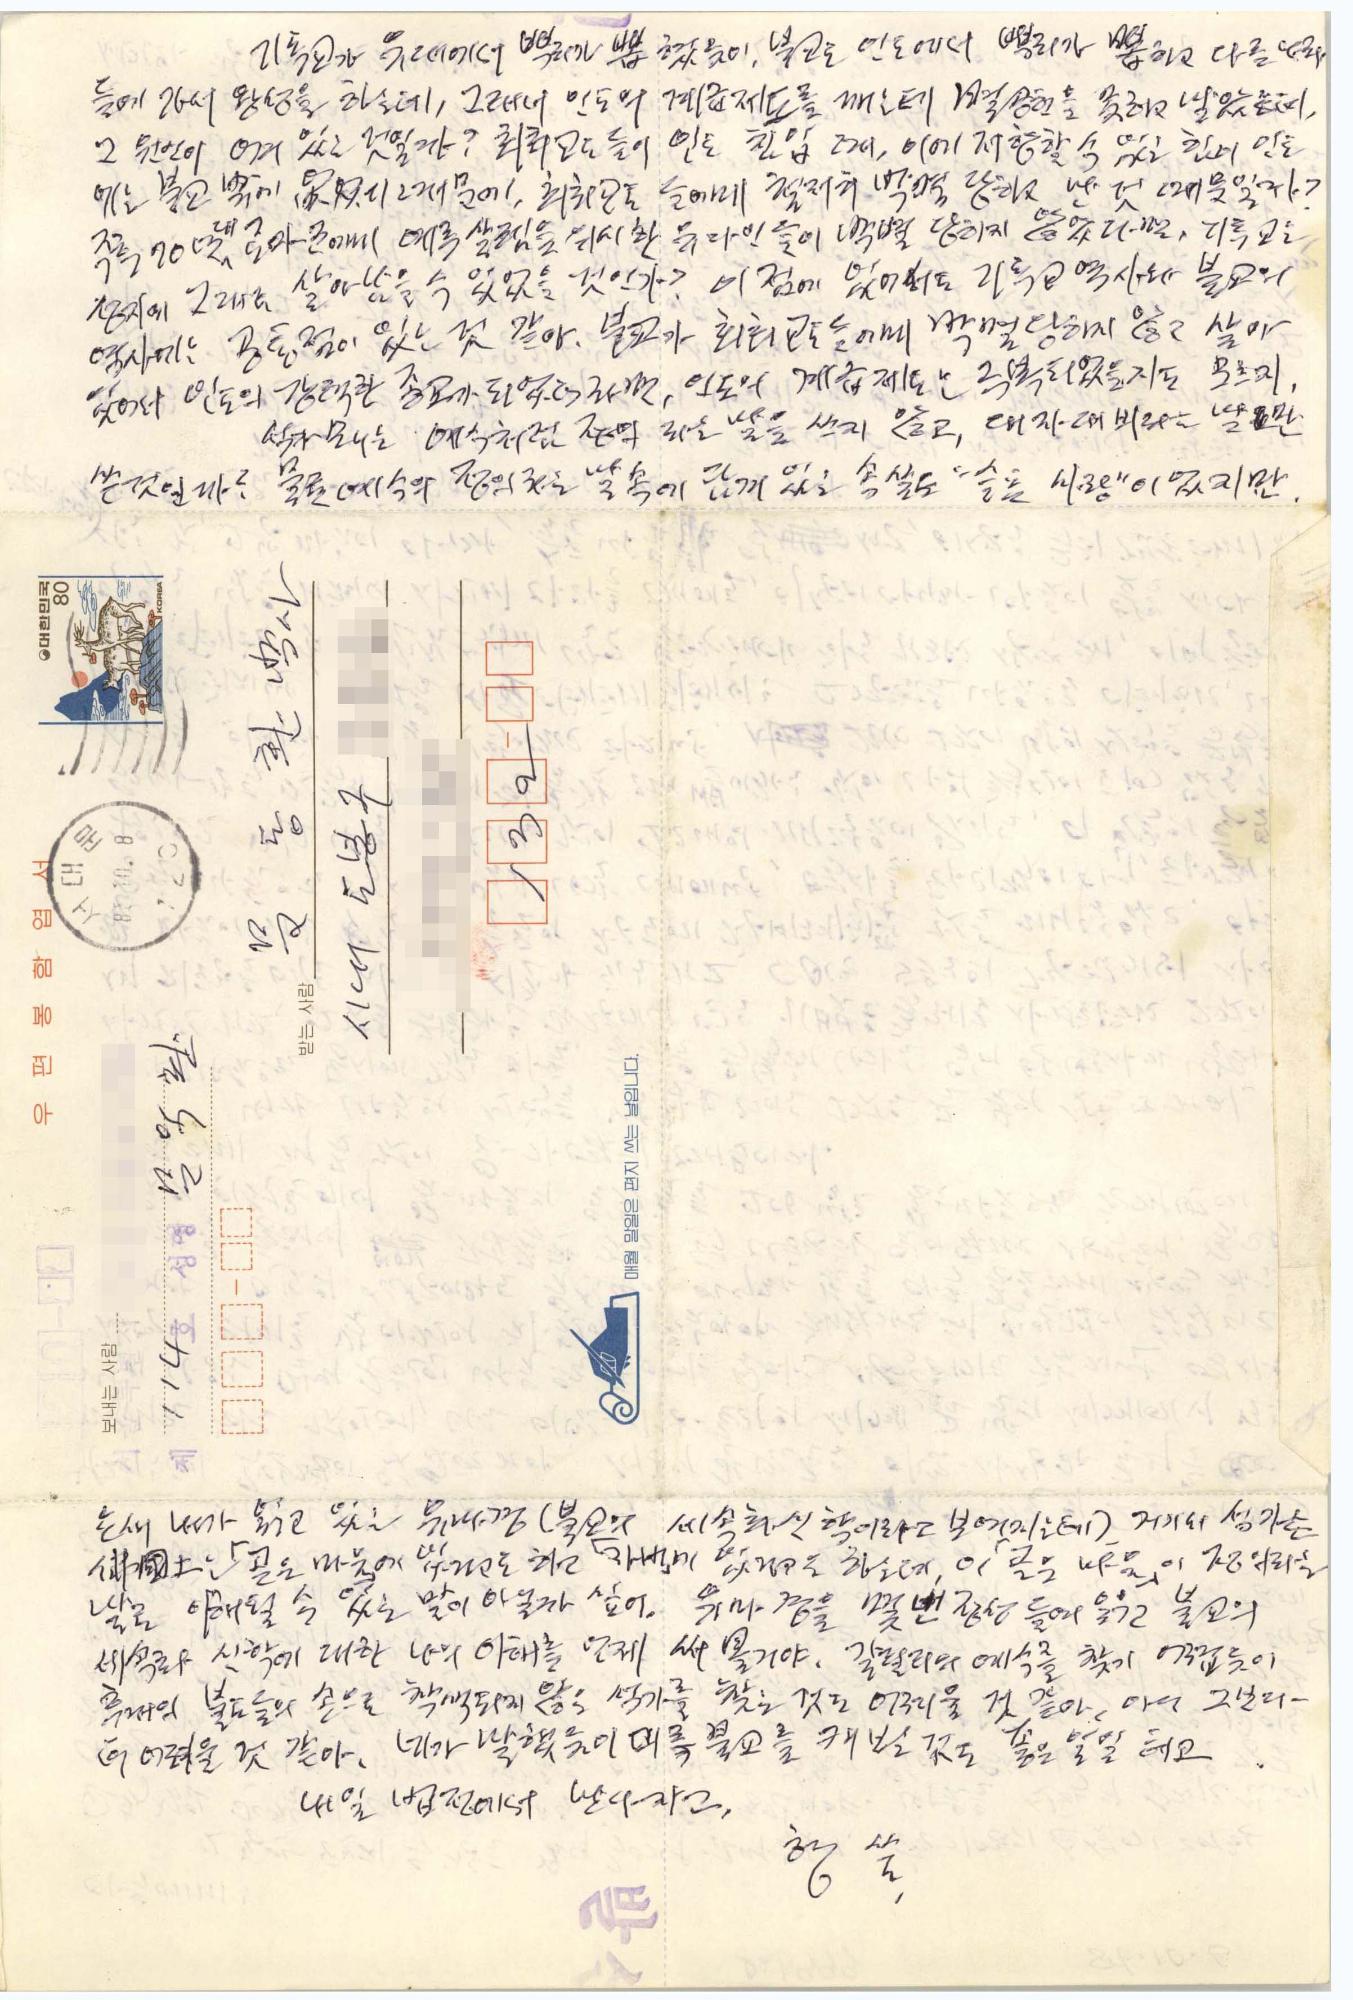 기독교가 유대에서 뿌리가 뽑혔듯이, 불교도 인도에서 뿌리가 뽑히고 다른 나라
들에 가서 왕성을 하는데, 그래서 인도의 계급제도를 깨는데 별 공헌을 못하고 말았는데,
그 원인이 어디 있는 것일까? 회회교도들이 인도 침입 때, 이에 저항할 수 있는 힘이 인도
에는 불교 밖에 없었기 때문에, 회회교도들에게 철저히 박멸 당하고 만 것 때문일까?
주후 70년대 로마군에게 예루살렘을 위시한 유다인들이 박멸 당하지 않았다면, 기독교는
살아남을 수 있었을 것인가? 이 점에 있어서도 기독교 역사와 불교의
역사에는 공통점이 있는 것 같아. 불교가 회회교도들에게 박멸당하지 않고 살아
있어서 인도의 강력한 종교가 되었더라면, 인도의 계급제도는 극복되었을지도 모르지.
석가모니는 예수처럼 정의라는 말을 쓰지 않고, 대자대비라는 말만
쓴 것일까? 물론 예수의 정의라는 말 속에 담겨 있는 속살도 "슬픈 사랑"이었지만.
대한민국 80 KOREA
우편봉함엽서
서대문
83.10.8
받는 사람
문동환 박사
시내 도봉구
132
보내는 사람
문익환
매월 말일은 편지 쓰는 날입니다.
요새 내가 읽고 있는 유마경(불교의 세속화 신학이라고 불려지는데) 거기의 석가는
佛國土는 「곧은 마음」에 있다고도 하고 하는데, 이 「곧은 마음」이 정의라는
말로 이해될 수 있는 말이 아닐까 싶어. 유마경을 몇 번 더 읽고 불교의
세속화 신학에 대한 나의 이해를 언제 써 볼거야. 갈릴리의 예수를 찾기 어렵듯이
후대의 불도들의 손으로 착색되지 않은 석가를 찾는 것도 어려울 것 같아. 아니 그보다
더 어려울 것 같아. 네가 말했듯이 미륵불교를 캐보는 것도 좋은 일일 테고.
내일 법전에서 만나자고.
형 씀.